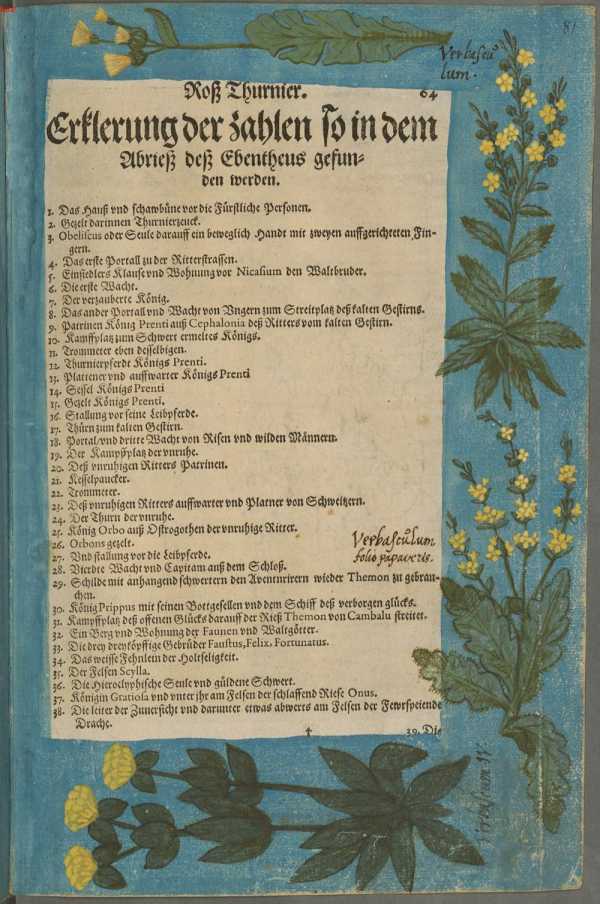 81
Verbascu
lum.
Roß Thurnier. 64
Erklerung der zahlen so in dem
Abrieß deß Ebentheus gefun-
den werden.
1. Das Hauß vnd schawbüne vor die Fürstliche Personen.
2. Gezelt darinnen Thurnierzeuck.
3. Obeliscus oder Seule darauff ein beweglich Handt mit zweyen auffgerichteten Fin-
gern.
4. Das erste Portall zu der Ritterstrassen.
5. Einsidlers Klause vnd Wohnung vor Nicasium den Waltbruder.
6. Die erste Wacht.
7. Der verzauberte König.
8. Das ander Portall vnd Wacht von Vngern zum Streitplatz deß kalten Gestirns.
9. Patrinen König Prenti auß Cephalonia deß Ritters vom kalten Gestirn.
10. Kampffplatz zum Schwert ermeltes Königs.
11. Trommeter eben desselbigen.
12. Thurnierpferdt Königs Prenti.
13. Plattener vnd auffwarter Königs Prenti
14. Sessel Königs Prenti
15. Gezelt Königs Prenti.
16. Stallung vor seine Leibpferde.
17. Thürn zum kalten Gestirn.
18. Portal vnd dritte Wacht von Risen vnd wilden Männern.
19. Der Kampfplatz der vnruhe.
20. Deß vnruhigen Ritters Patrinen.
21. Kesselpaucker.
22. Trommeter.
23. Deß vnruhigen Ritters auffwarter vnd Platner von Schweitzern.
24. Der Thurn der vnruhe.
25. König Orbo auß Ostrogothen der vnruhige Ritter.
26. Orbons gezelt.
27. Vnd stallung vor die Leibpferde.
28. Vierdte Wacht vnd Capitam auß dem Schloß.
29. Schilde mit anhangend schwertern den Aventurirern wieder Themon zu gebrau-
chen.
30. König Prippus mit seinen Bottgesellen vnd dem Schiff deß verborgen glücks.
31. Kampffplatz deß offenen Glücks darauff der Rieß Themon von Cambalu streitet.
32. Ein Berg vnd Wohnung der Faunen vnd Waltgötter.
33. Die drey dreyköpffige Gebrüder Faustus, Felix, Fortunatus.
34. Das weisse Fehnlein der Holtseligkeit.
35. Der Felsen Scylla.
36. Die Hieroclyphische Seule vnd güldene Schwert.
37. Königin Gratiosa vnd vnter jhr am Felsen der schlaffend Riese Onus.
38. Die leiter der Zuuersicht vnd darunter etwas abwerts am Felsen der Fewrspeiende
Drache.
† 39. Die
Verbasculum
folio papaveris.